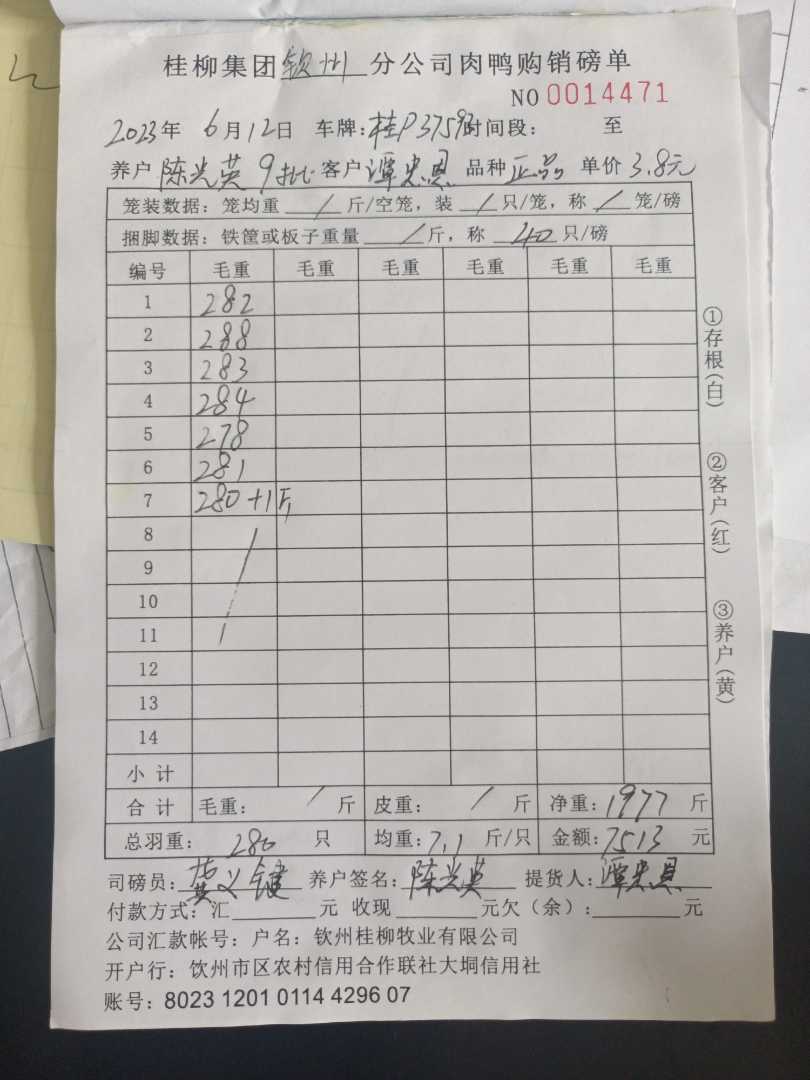 桂柳集团钦州分公司肉鸭购销磅单
NO 0014471
2023年 6月12日 车牌:桂P37593时间段: 至
养户陈光英9批客户谭忠恩 品种正品 单价3.8元
笼装数据: 笼均重 / 斤/空笼, 装 / 只/笼, 称 / 笼/磅
捆脚数据: 铁筐或板子重量 / 斤, 称 40 只/磅
编号 毛重 毛重 毛重 毛重 毛重 毛重
1 282
2 288
3 283
4 284
5 278
6 281
7 280+1斤
8
9
10
11
12
13
14
小 计
合 计 毛重: / 斤 皮重: / 斤 净重:1977 斤
总羽重: 280 只 均重:7.1 斤/只 金额:7513 元
司磅员:黄义键 养户签名:陈光英 提货人:谭忠恩
付款方式: 汇 元 收现 元欠(余): 元
公司汇款帐号: 户名: 钦州桂柳牧业有限公司
开户行: 饮州市区农村信用合作联社大垌信用社
账号: 8023 1201 0114 4296 07
①存根(白)
②客户(红)
③养户(黄)